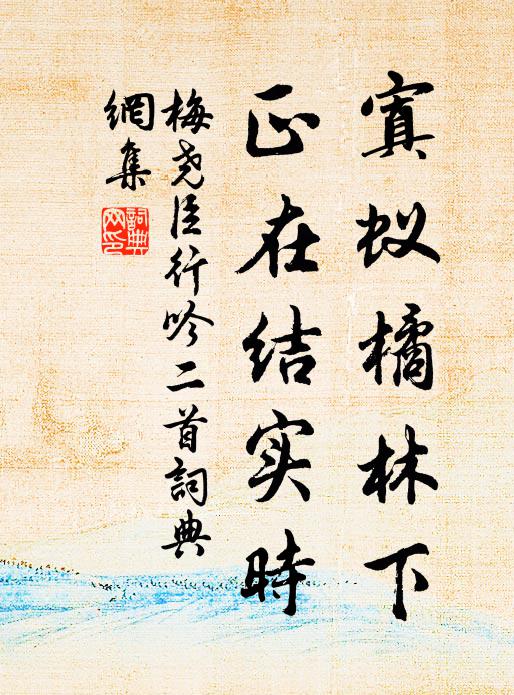 寘蚁橘林下
正在结实时
梅尧臣行吟二首詞典
網集
詞典网印